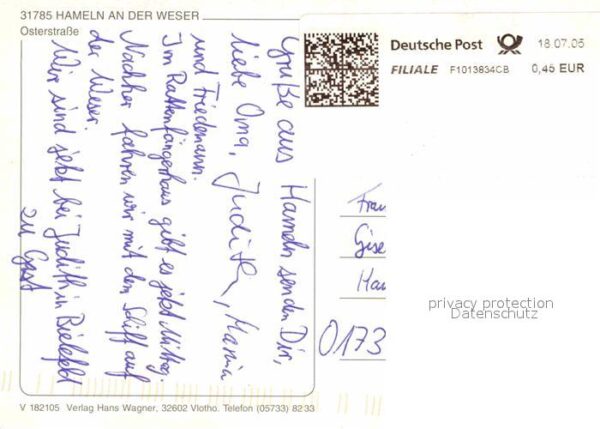 31785 HAMELN AN DER WESER
Osterstraße
Deutsche Post
18.07.05
FILIALE F1013834CB 0,45 EUR
Grüße aus Hameln senden Dir,
liebe Oma, Judith, Maria
und Friedemann.
Im Rattenfängerhaus gibt es jetzt Mittag.
Nachher fahren wir mit dem Schiff auf
der Weser.
Wir sind jetzt bei Judith in Bielefeld
zu Gast
Frau
Gise
Hau
0173
privacy protection
Datenschutz
V 182105 Verlag Hans Wagner, 32602 Vlotho. Telefon (05733) 8233